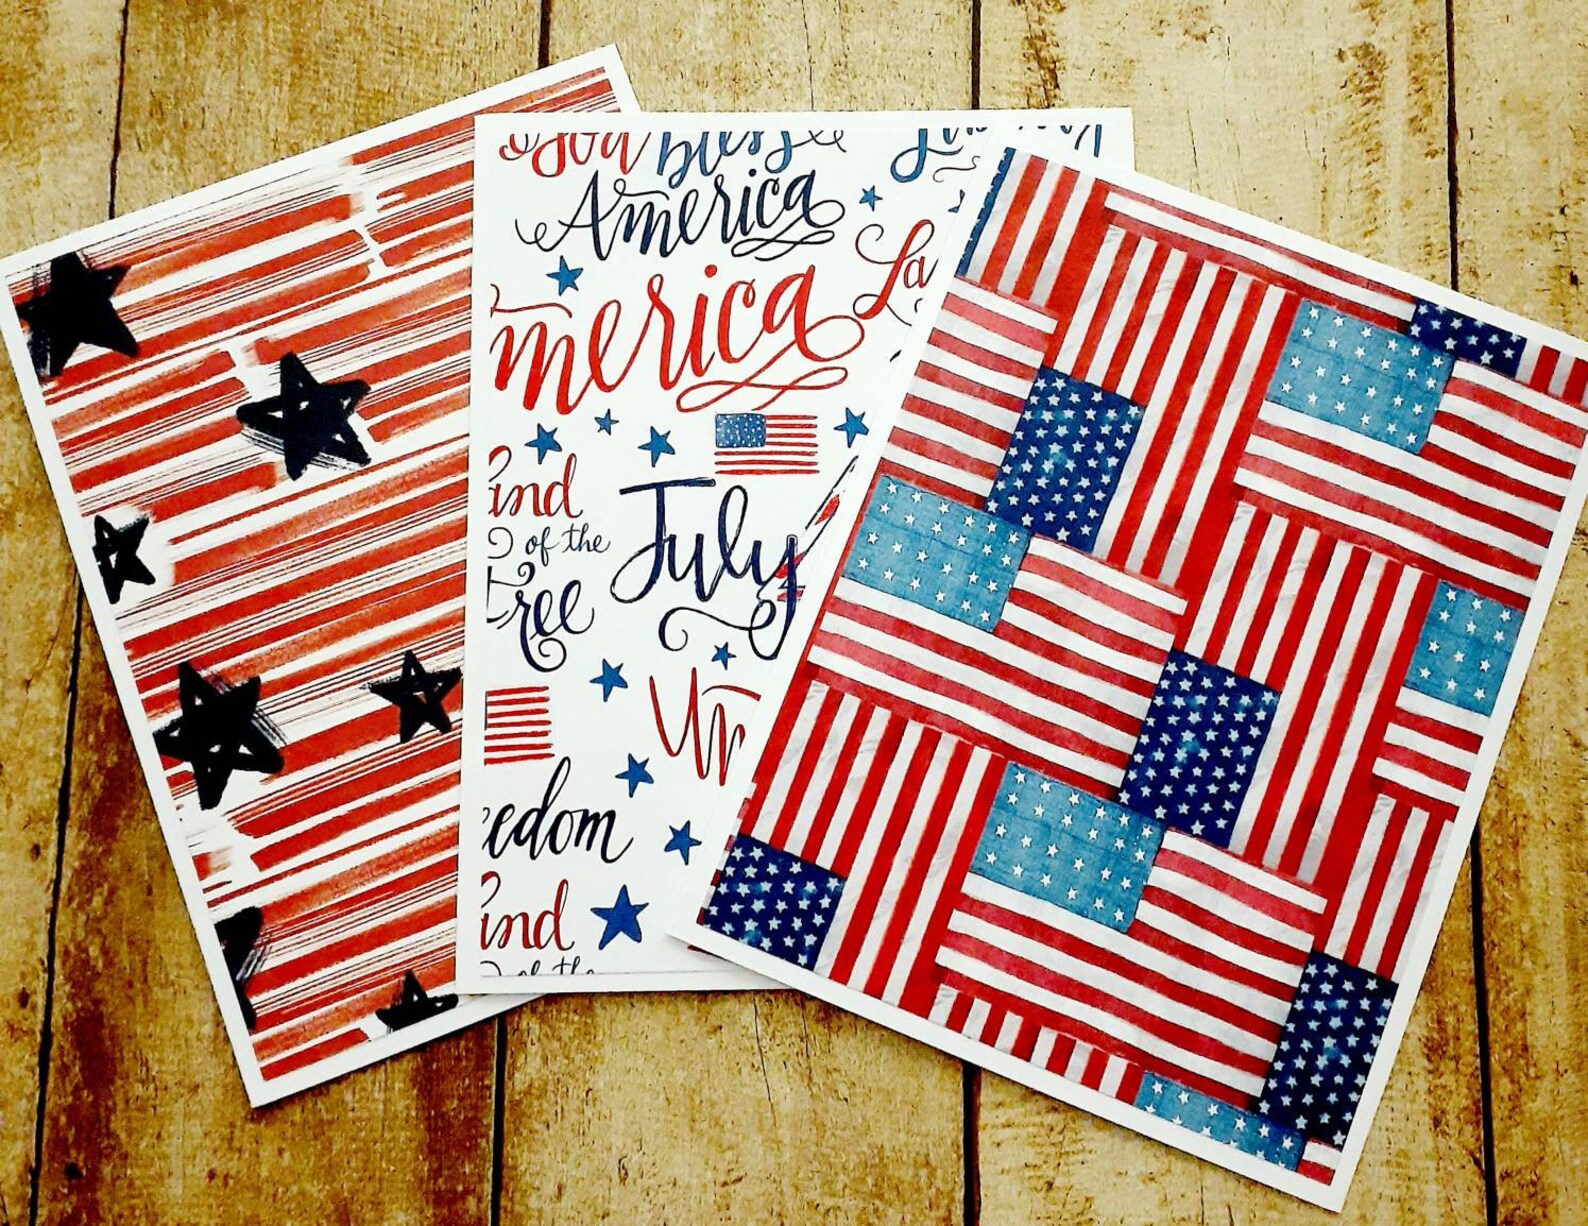 God Bless
America
La
merica
and
of the
July
ree
Un
eedom
and
of the